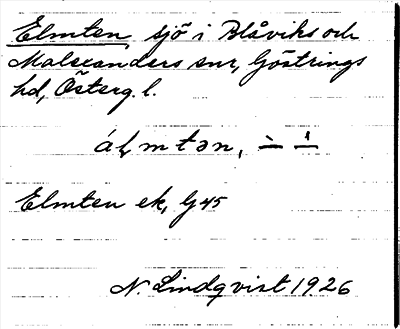 Elmten, sjö i Blåviks och
Malexanders snr, Göstrings
hd, Österg. l.
Elmten ek, G 45
N. Lindqvist 1926